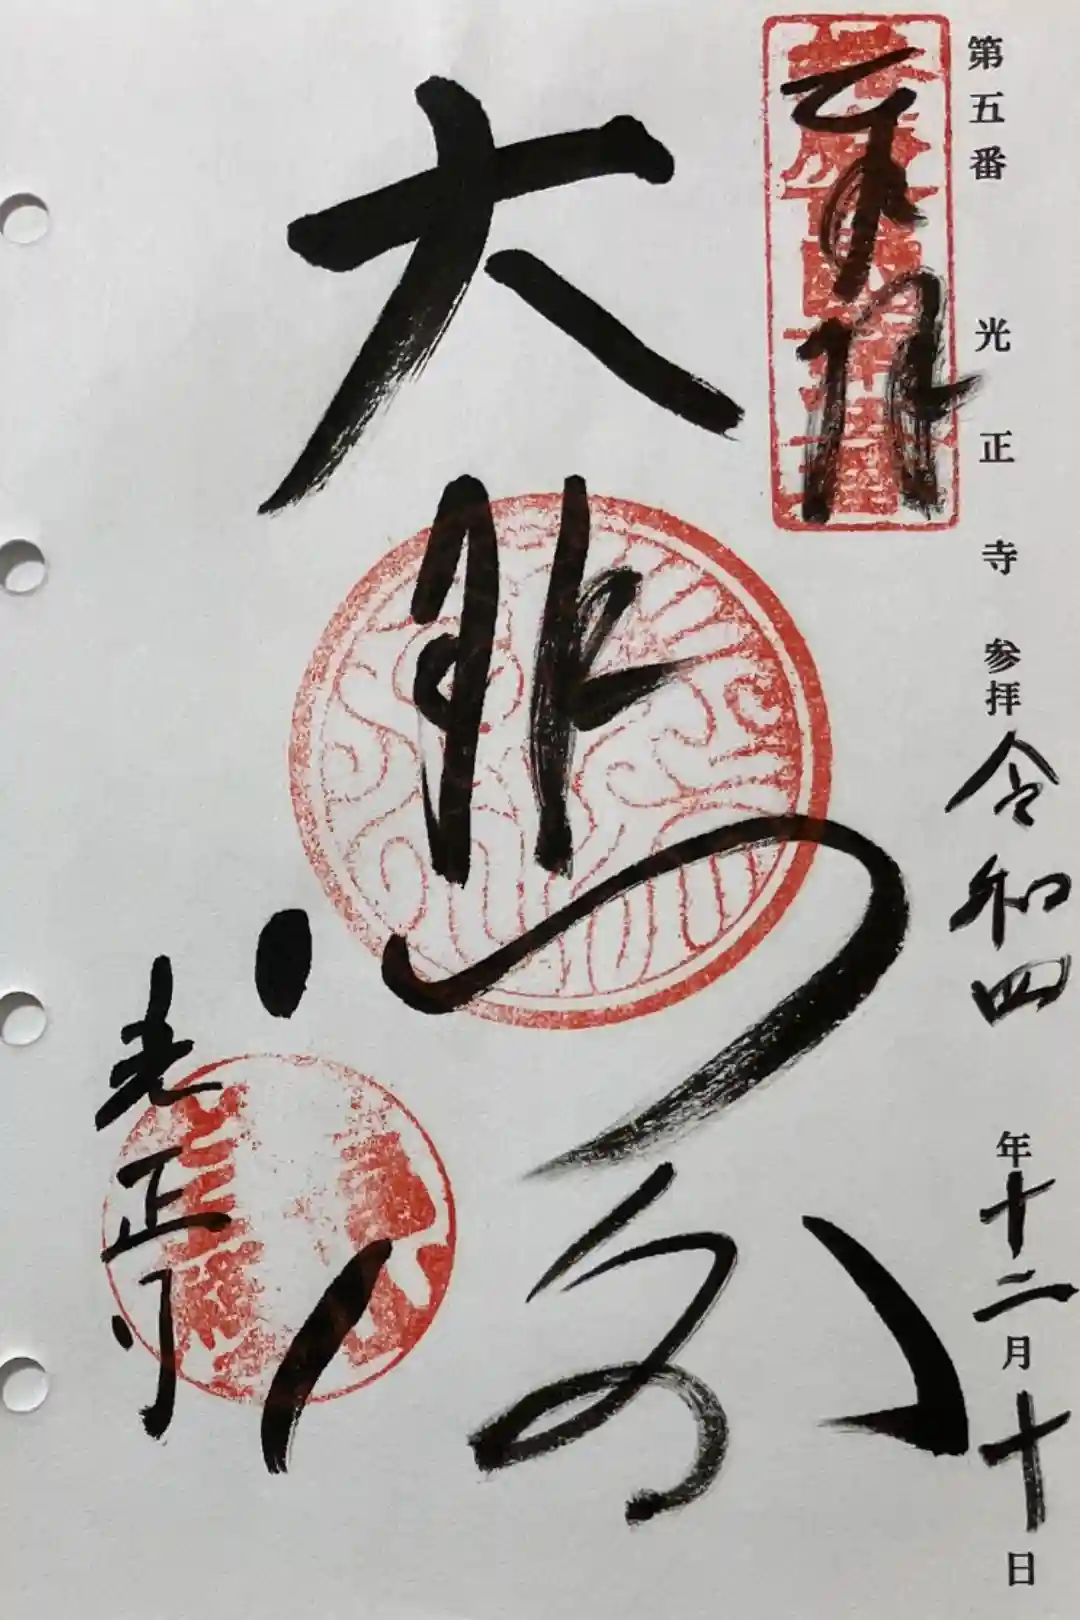 第五番 光正寺 参拝 令和四年十二月十日
奉拝
大悲
光正寺